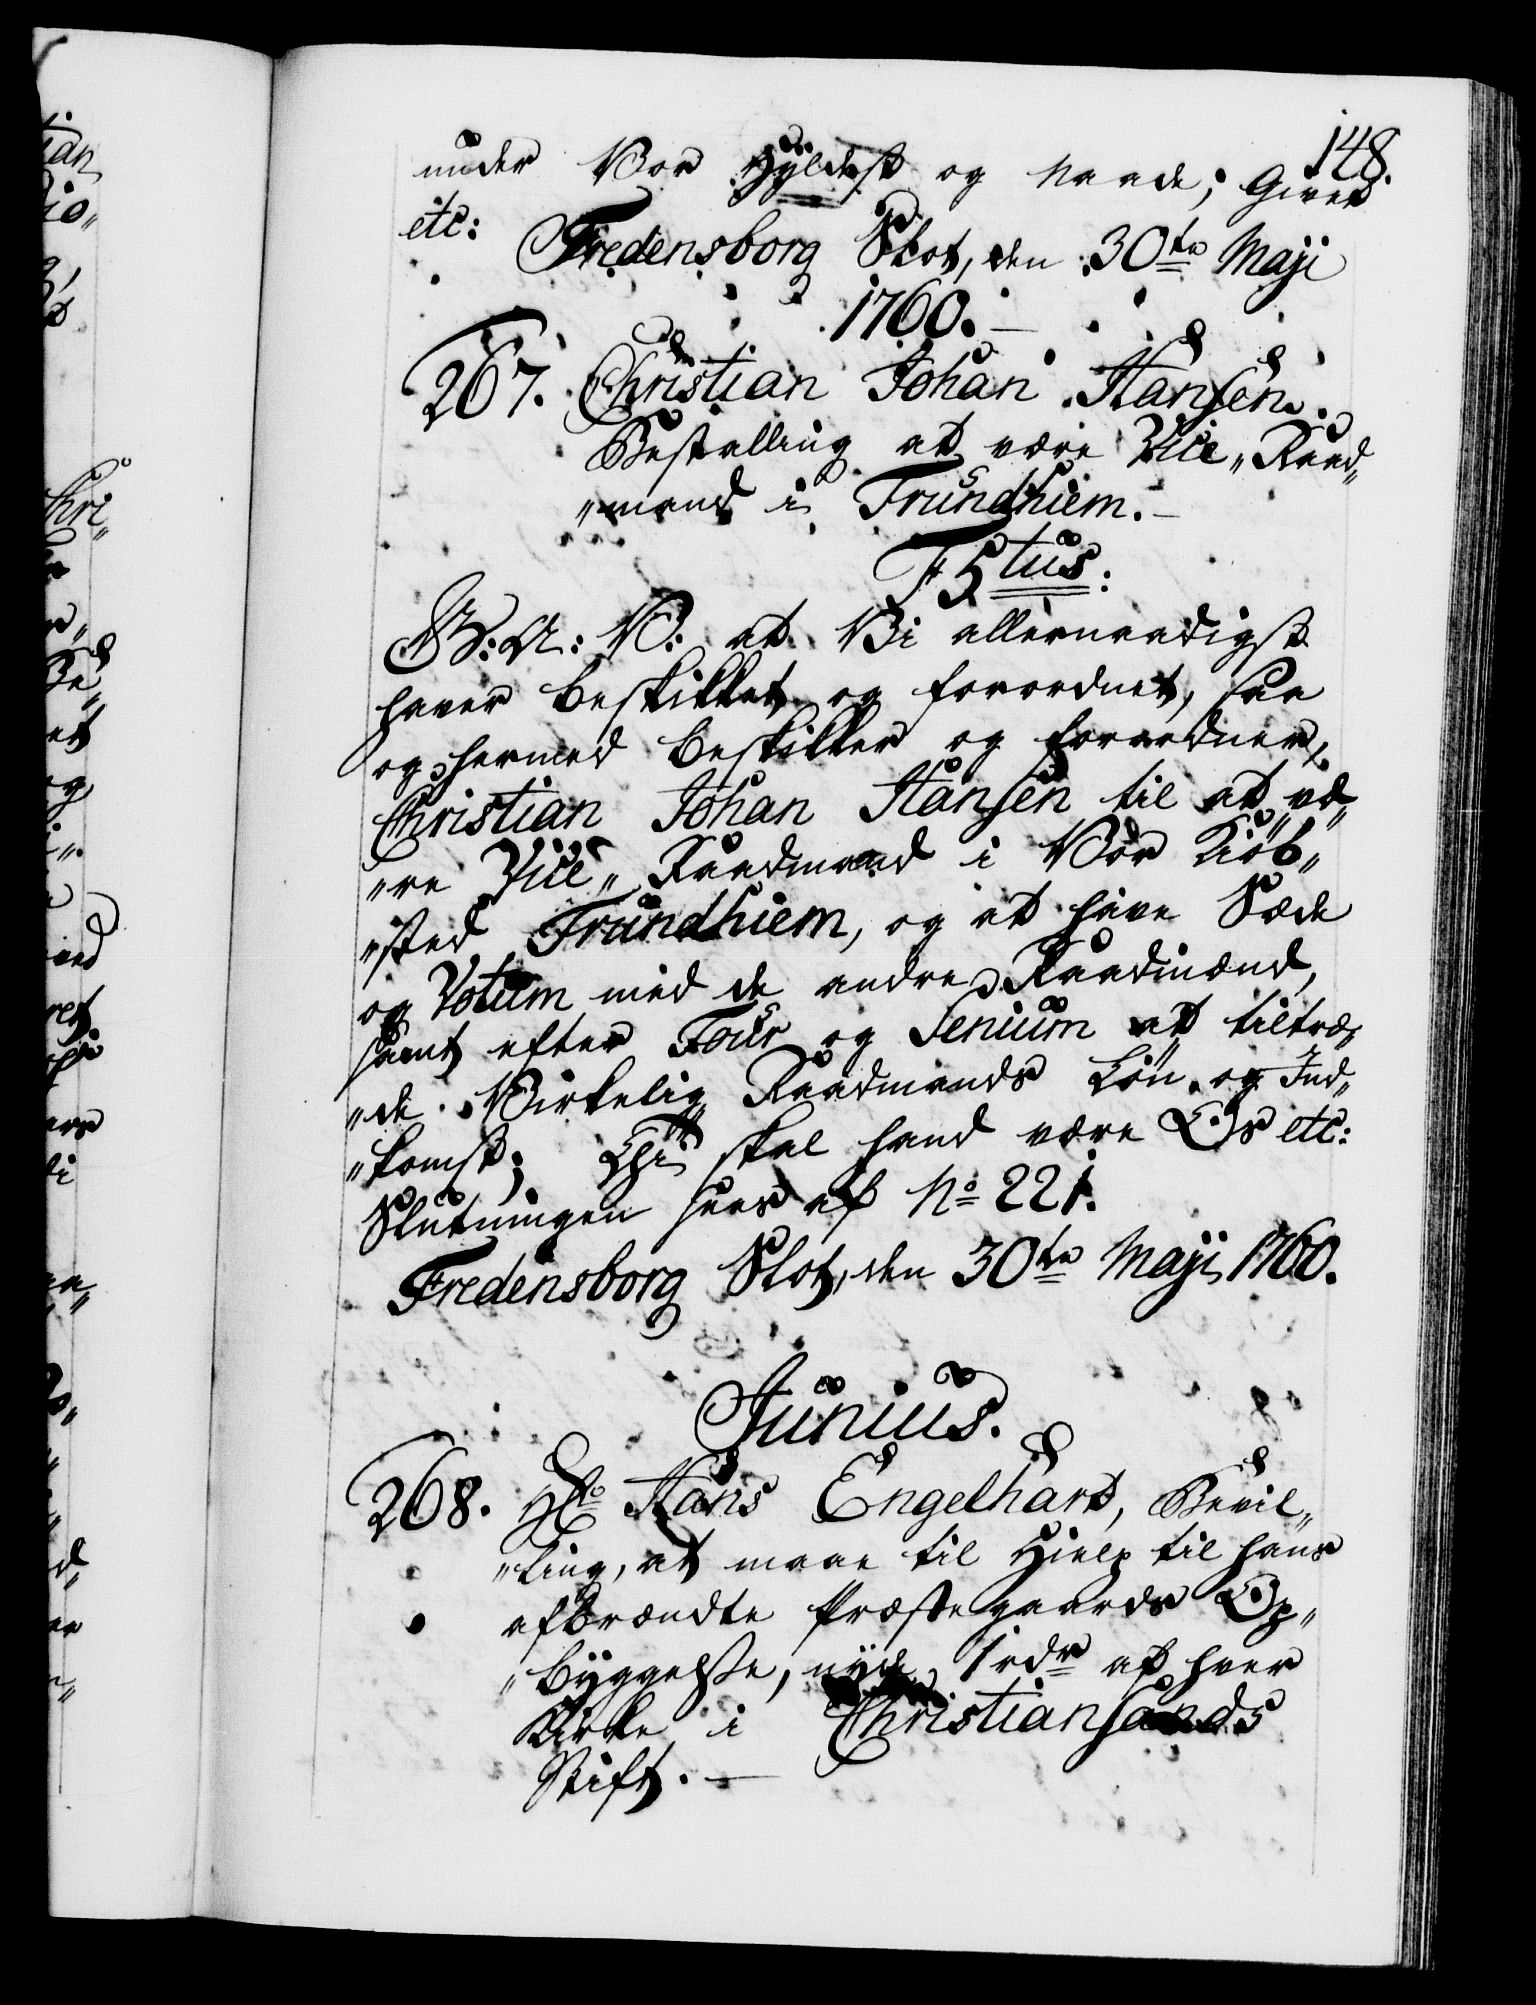 148.
under Vor Hÿldest og Naade; Givet
etc: Fredensborg Slot, den 30te Maji
1760.
267. Christian Johan Hansen.
Bestalling at være Vice„Raad„
„mand i Trundhiem.
F5tus:
G: A: V: at Vi allernaadigst
haver beskikket og forordnet, saa
og hermed beskikker og forordner,
Christian Johan Hansen til at væ„
„re Vice„Raadmand i Vor Kiöb„
„sted Trundhiem, og at have Sæde
og Votum med de andre Raadmænd,
samt efter Tour og Senium at tiltræ„
„de Virkelig Raadmands Lön og Ind„
„komst; Thi skal hand være Os etc:
Slutningen sees af No 221.
Fredensborg Slot, den 30te Maji 1760.
Junius.
268. Hr Hans Engelhart, Bevil„
„ling, at maae til Hielp til hans
afbrændte Præstegaards Op„
„byggelse, nyde 1 rdr af hver
Kirke i Christiansands
Stift.